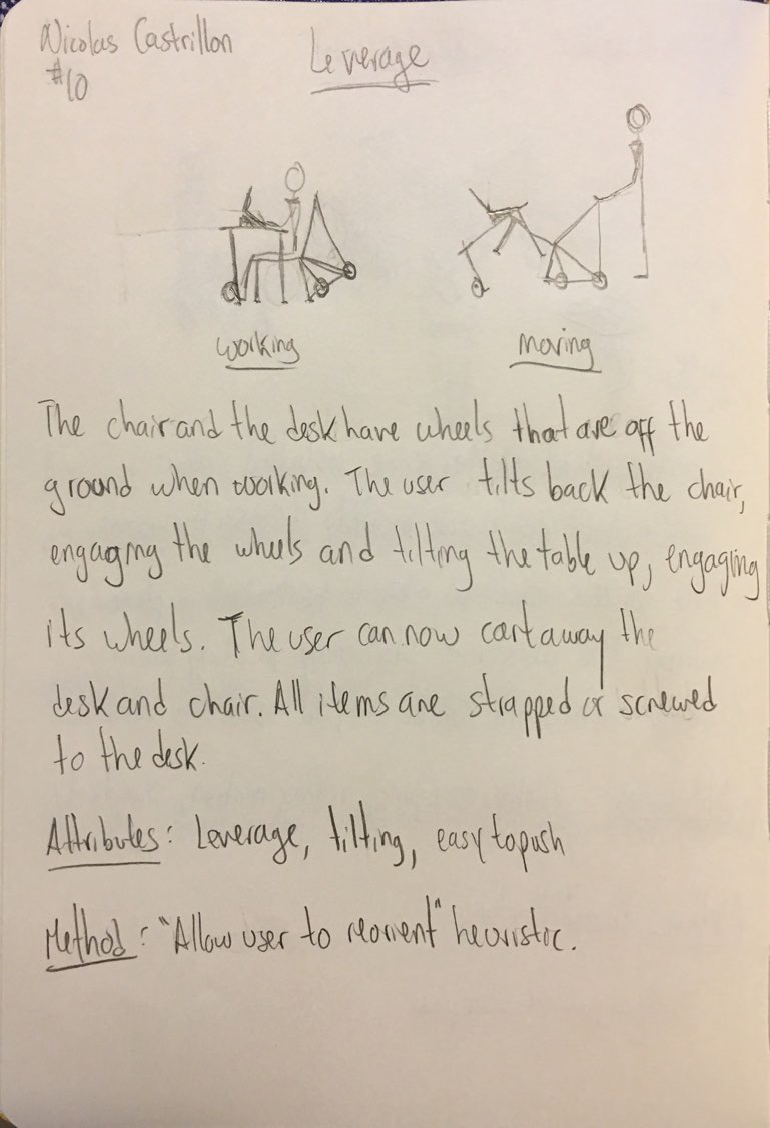 Nicolas Castrillon
#10
Leverage
working
moving
The chair and the desk have wheels that are off the
ground when working. The user tilts back the chair,
engaging the wheels and tilting the table up, engaging
its wheels. The user can now cart away the
desk and chair. All items are strapped or screwed
to the desk.
Attributes: Leverage, tilting, easy to push
Method: "Allow user to reorient" heuristic.